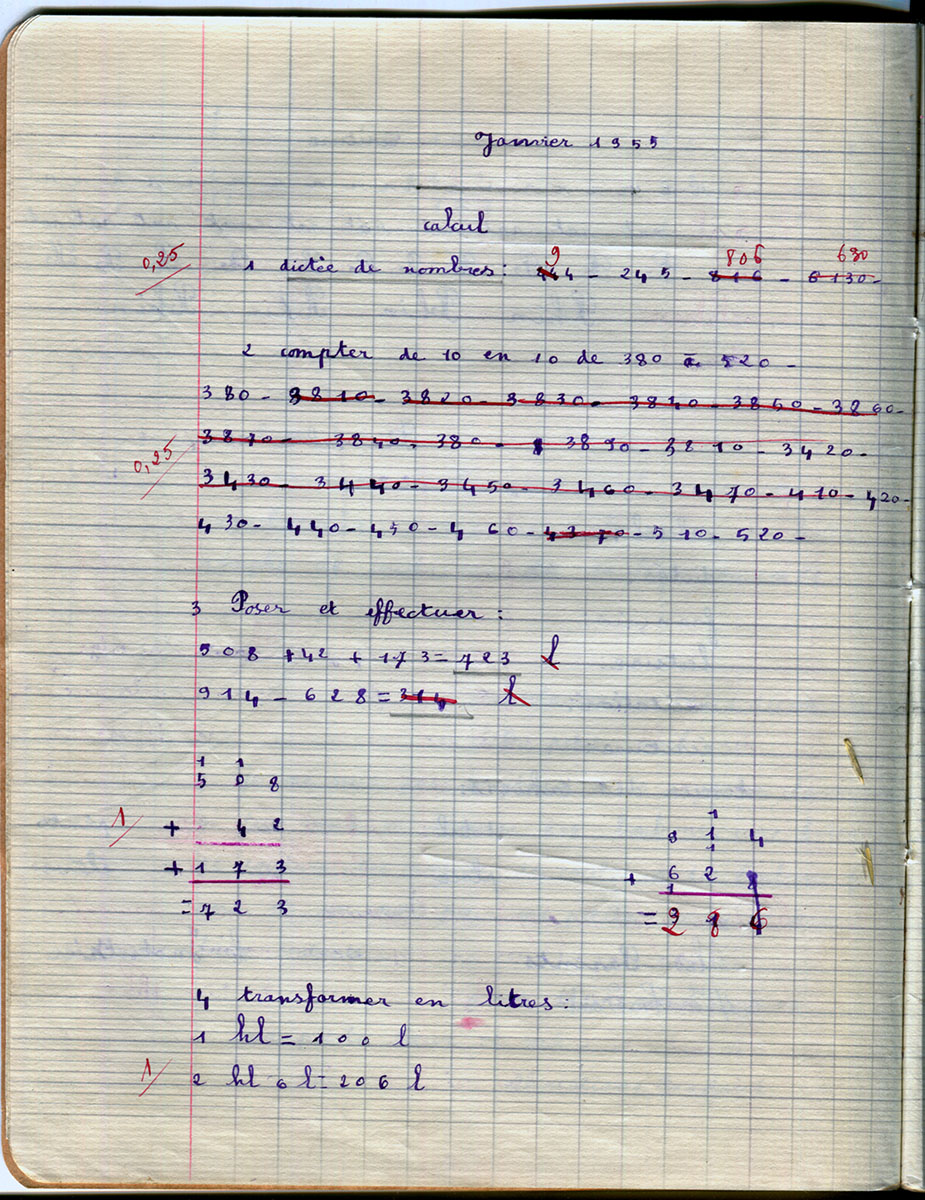 Janvier 1955
calcul
9 806 680
0,25 1 dictée de nombres: 444 - 245 - 816 - 6130-
2 compter de 10 en 10 de 380 à 520 -
380 - 3810 - 3820 - 3830 - 3840 - 3850 - 3860-
3870 - 3840 - 380 - 3890 - 3810 - 3420 -
0,25
3430 - 3440 - 3450 - 3460 - 3470 - 410 - 420-
430 - 440 - 450 - 460 - 4370 - 510 - 520 -
3 Poser et effectuer:
508 + 42 + 173 = 723 l
914 - 628 = 314 l
1 1
5 0 8
1 + 4 2
+ 1 7 3
= 7 2 3
1
9 1 4
1
+ 6 2 8
1
= 2 8 6
4 transformer en litres:
1 hl = 100 l
1 2 hl 6 l = 206 l